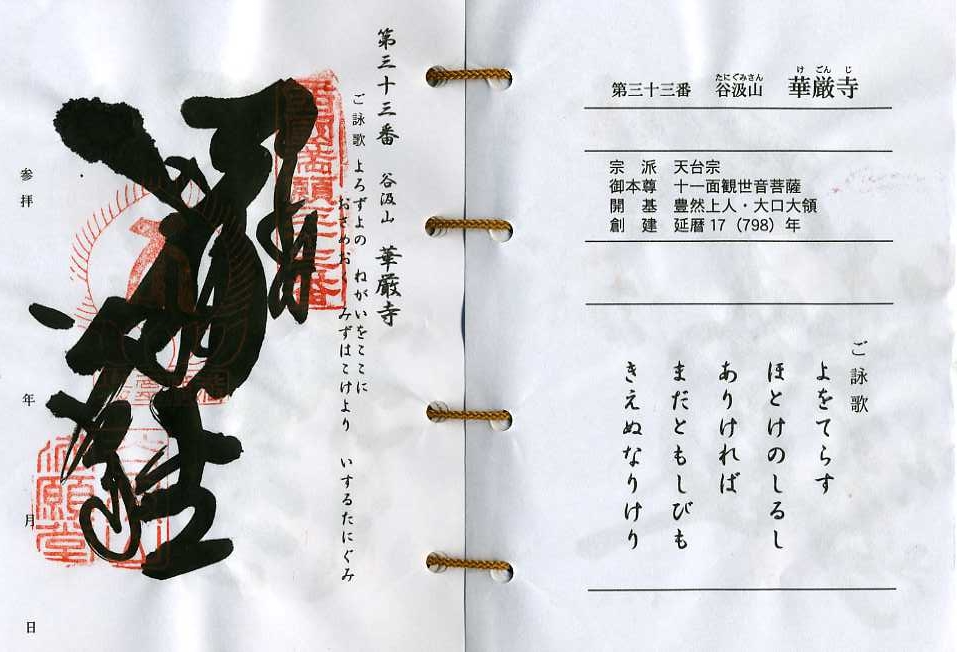 たにぐみさん けごんじ
第三十三番 谷汲山 華厳寺
宗派 天台宗
御本尊 十一面観世音菩薩
開基 豊然上人・大口大領
創建 延暦17(798)年
ご詠歌
よをてらす
ほとけのしるし
ありければ
まだともしびも
きえぬなりけり
第三十三番 谷汲山 華厳寺
ご詠歌 よろずよの ねがいをここに
おさめおく みずはこけより いずるたにぐみ
西國満願三十三番
満願堂
参拝 年 月 日